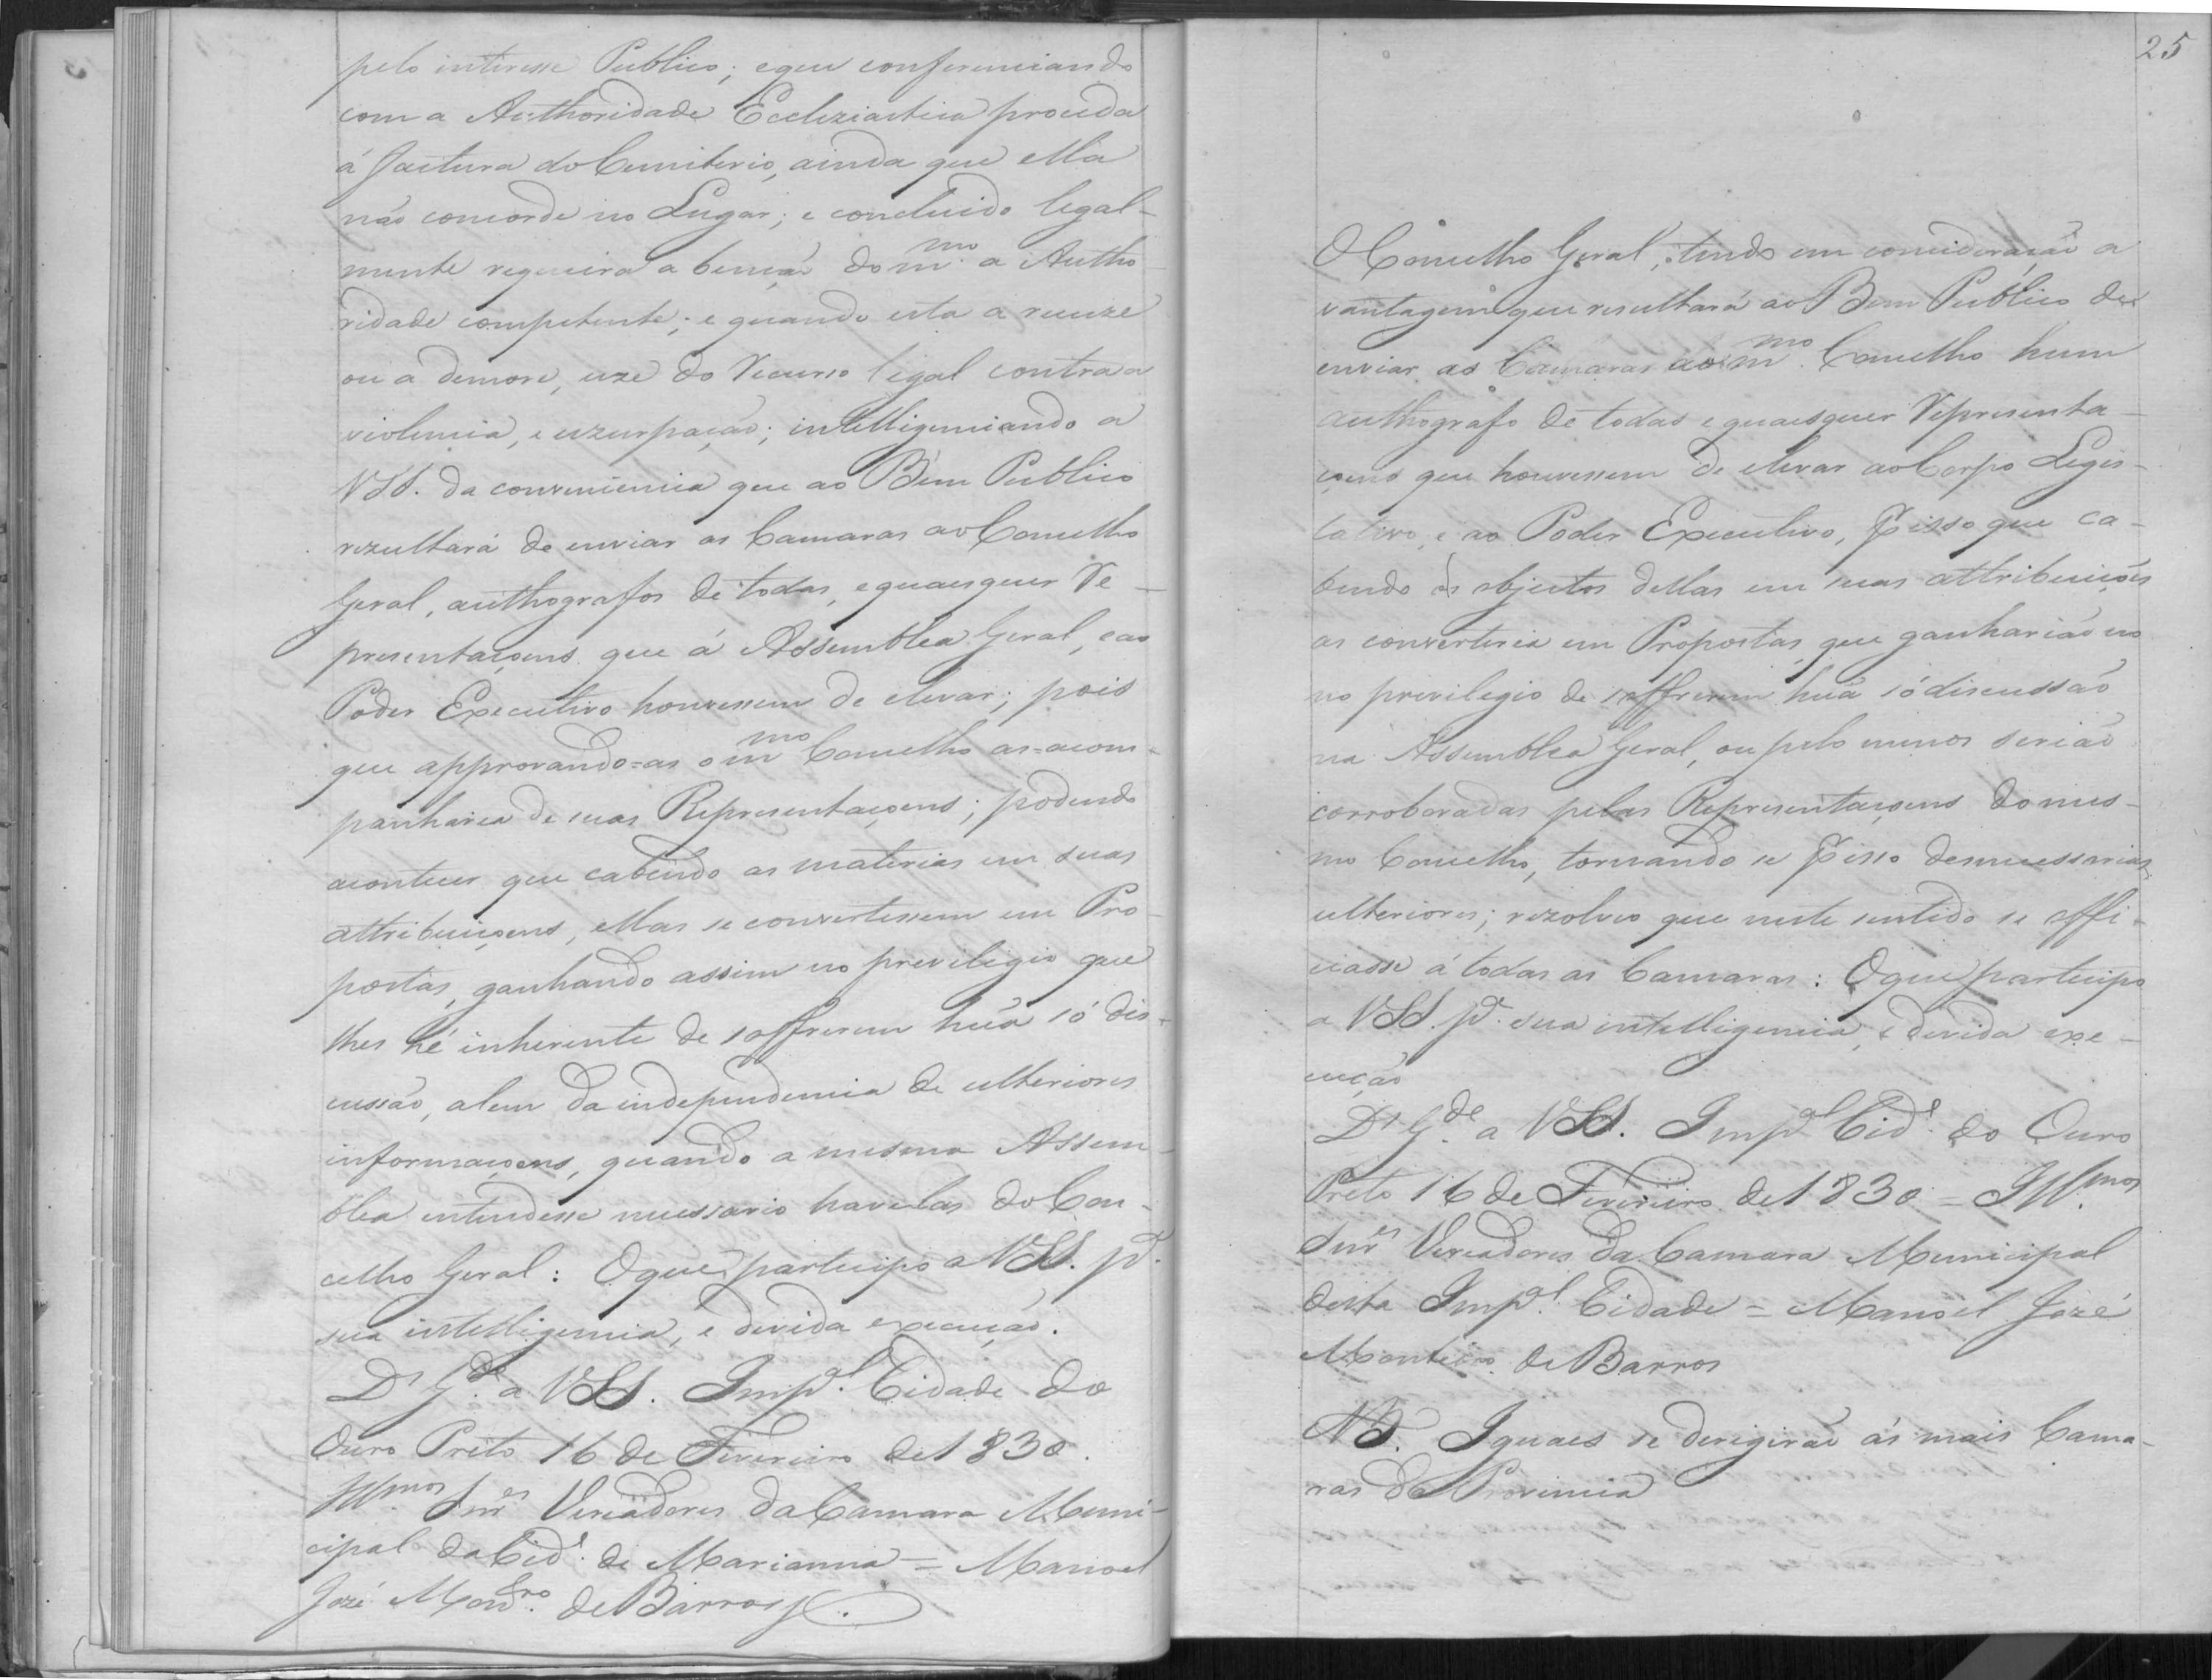 pelo interesse Publico; eque conferenciando
com a Authoridade Eccleziastica proceda
á factura do Cemiterio, ainda que ella
não concorde no Lugar; e concluido legal-
mente requeira a benção do m.mo a Autho-
ridade competente; e quando esta a recuze
ou a demore, uze do Recurso legal contra a
violencia, e uzurpação; intelligenciando a
VSS. da conveniencia que ao Bem Publico
rezultará de enviar as Camaras ao Concelho
Geral, authografos de todas, equaesquer Re-
prezentaçoens que á Assemblea Geral, eao
Poder Executivo houvessem de elevar; pois
que approvando=as o m.mo Concelho as=acom-
panharia de suas Reprezentaçoens; podendo
acontecer que cabendo as materias em suas
attribuiçoens, ellas se convertessem em Pro-
postas, ganhando assim no previlegio que
lhes hé inherente de soffrerem huã só dis-
cussão, alem da independencia de ulteriores
informaçoens, quando a mesma Assem-
blea entendesse necessario havelas do Con-
celho Geral: Oque participo a VSS. pa.
sua intelligencia, e devida execução.
Ds. G.de a VSS. Imp.al Cidade do
Ouro Preto 16 de Fevereiro de 1830.
Ill.mos Snr.es Vereadores da Camara Muni-
cipal da Cid.e de Marianna = Manoel
José Mont.ro de Barros
25
O Concelho Geral, tendo em consideração a
vantagem que resultará ao Bem Publico de
enviar as Camaras ao m.mo Concelho hum
authografo de todas e quaesquer Representa-
çoens que houvessem de elevar ao Corpo Legis-
lativo, e ao Poder Executivo, P isso que ca-
bendo os objectos dellas em suas attribuições
as converteria em Propostas, que ganharião no
no previlegio de soffrerem huã só discussão
na Assemblea Geral, ou pelo menos serião
corroboradas pelas Representaçoens do mes-
mo Concelho, tornando se P isso desnecessarias
ulteriores; rezolveo que neste sentido se offi-
ciasse á todas as Camaras: Oque participo
a VSS. pa. sua intelligencia, e devida exe-
cução
Ds. G.de a VSS. Imp.al Cid.e do Ouro
Preto 16 de Fevereiro de 1830 = Ill.mos
Snr.es Vereadores da Camara Municipal
desta Imp.al Cidade = Manoel José
Monteiro de Barros
NB. Iguaes se derigirão ás mais Cama-
ras da Provincia